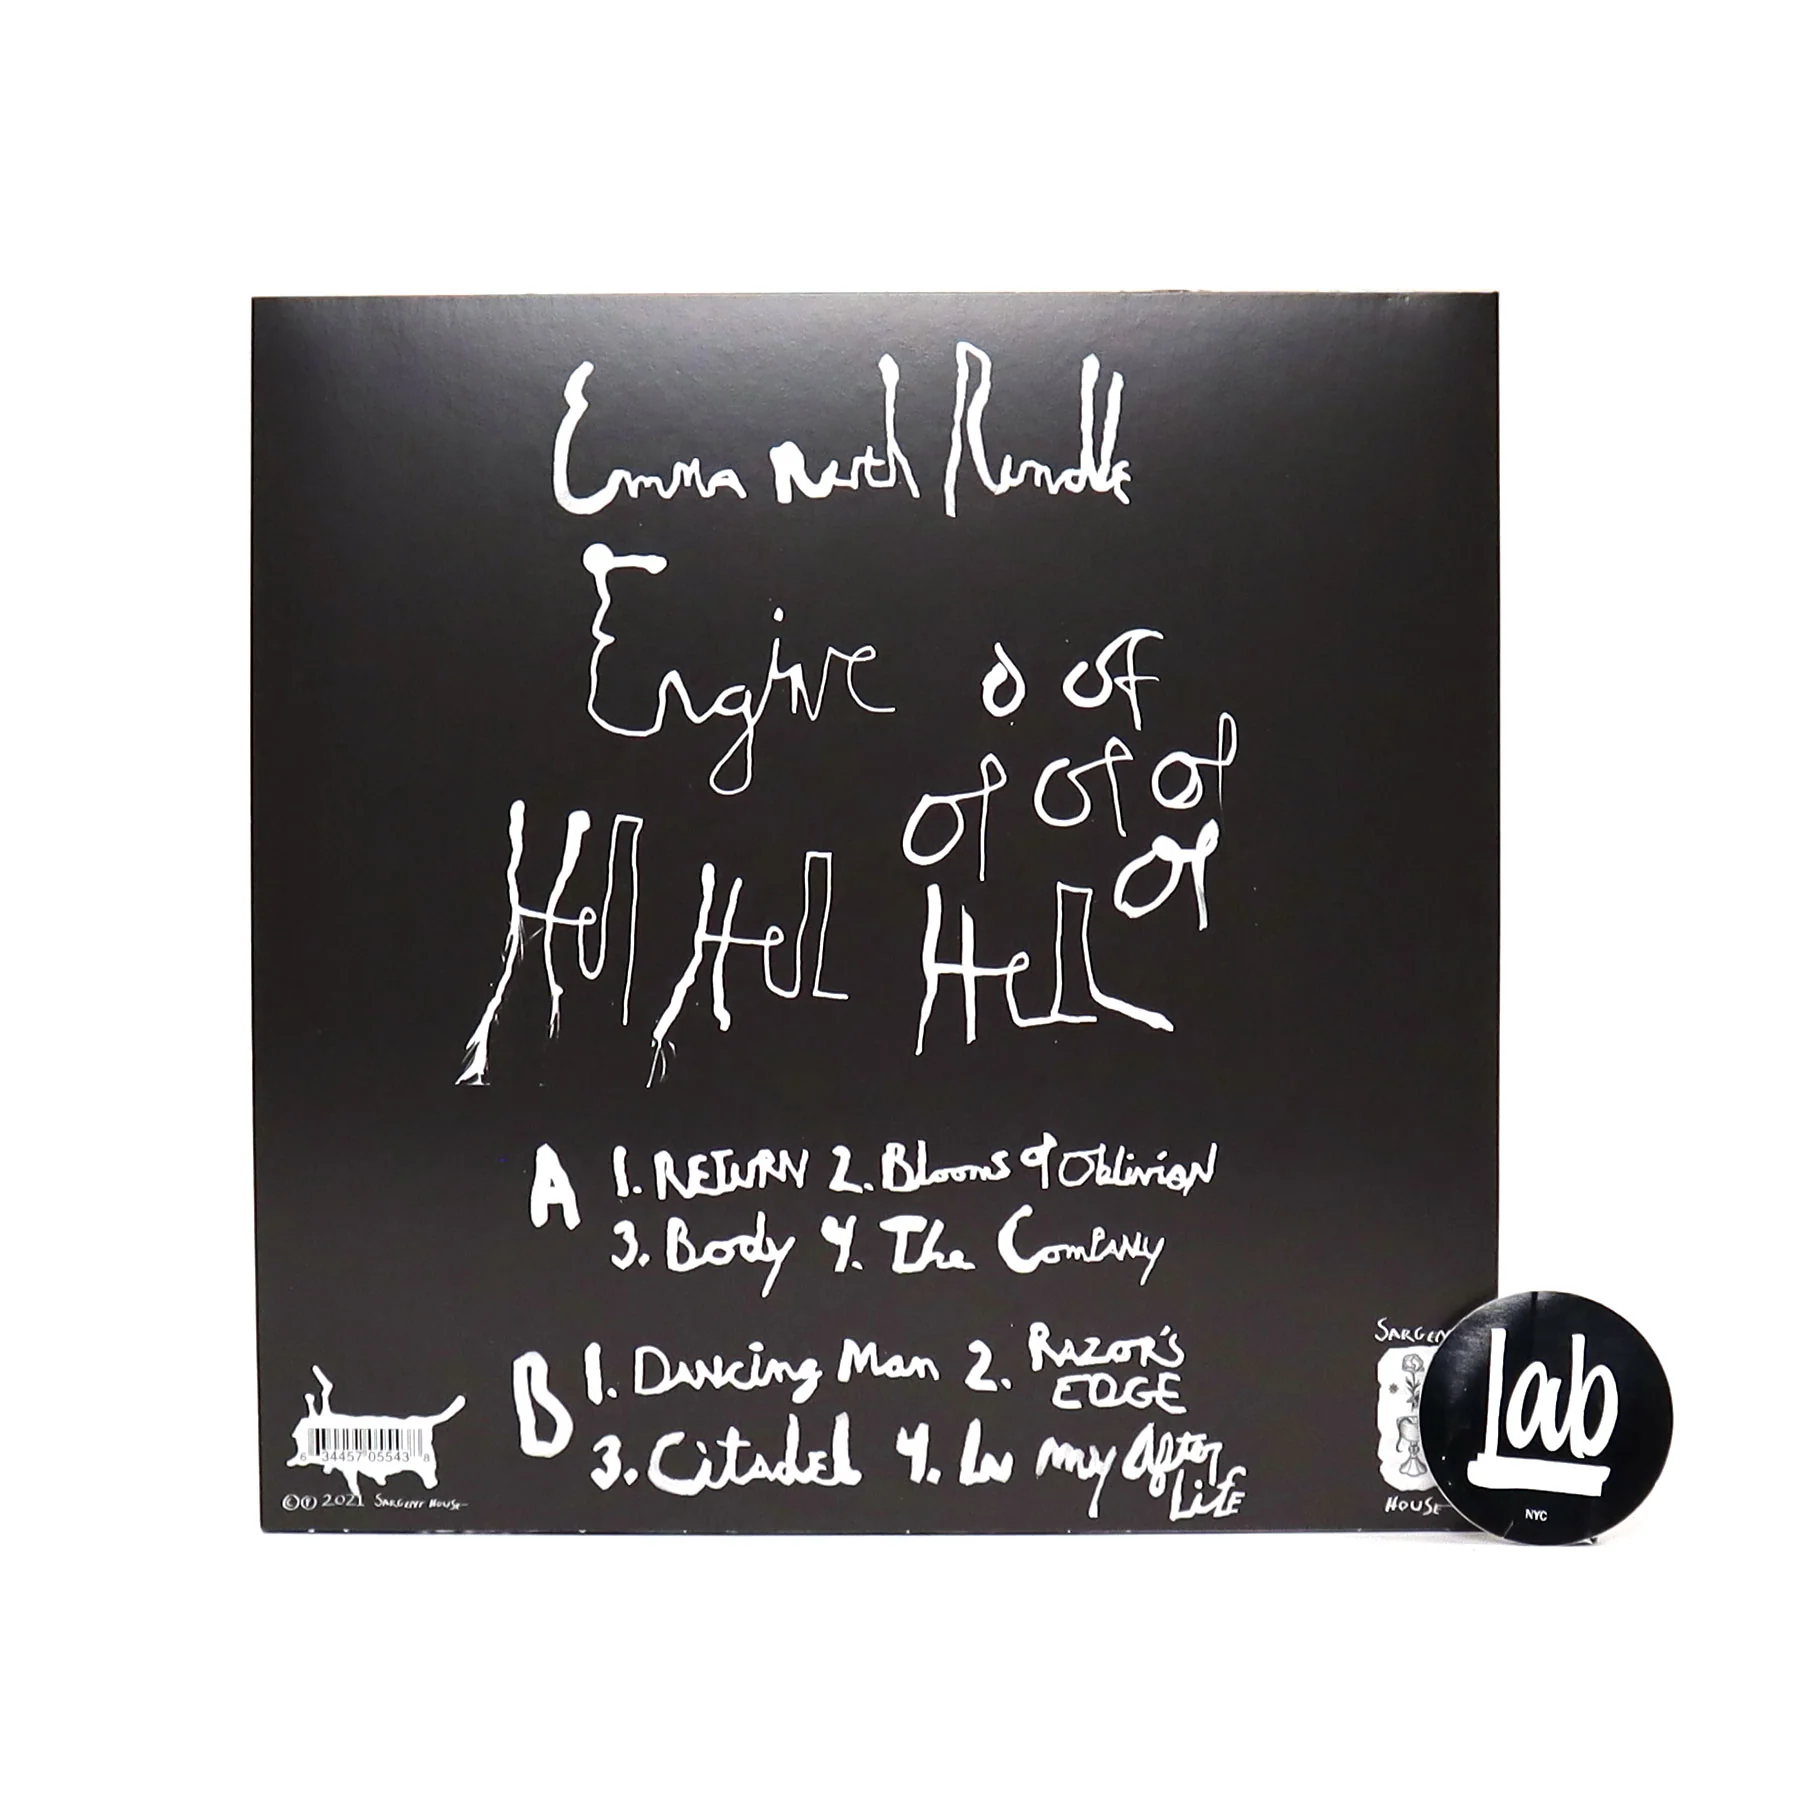 Emma Ruth Rundle
Engine o of
of of of
of
Hell Hell Hell
A 1. RETURN 2. Blooms of Oblivion
3. Body 4. The Company
B 1. Dancing Man 2. RAZOR'S
EDGE
3. Citadel 4. In my After
Life
6 34457 05543 8
©℗ 2021 SARGENT HOUSE
SARGEN
HOUSE
Lab
NYC